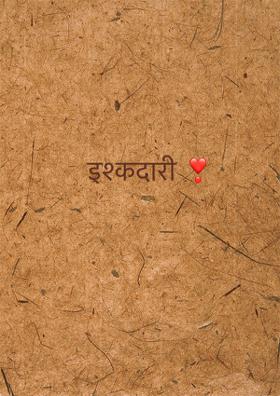 इश्कदारी ❣️